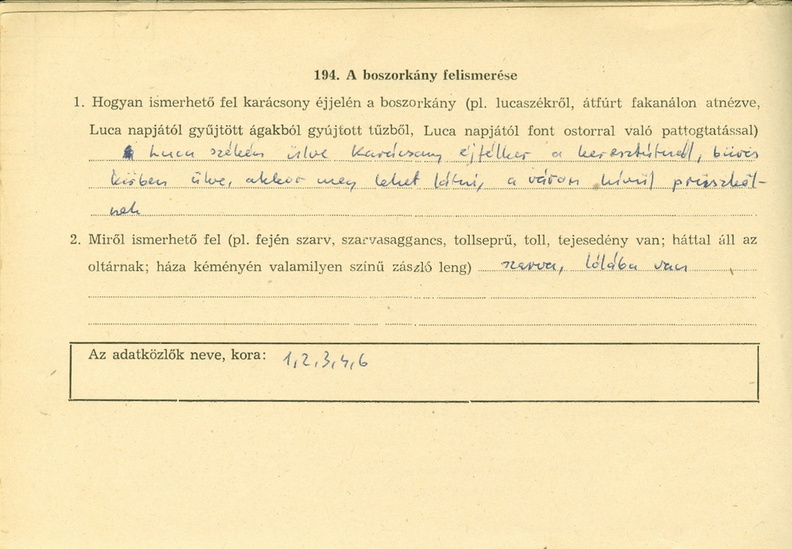 194. A boszorkány felismerése
1. Hogyan ismerhető fel karácsony éjjelén a boszorkány (pl. lucaszékről, átfúrt fakanálon atnézve,
Luca napjától gyűjtött ágakból gyújtott tűzből, Luca napjától font ostorral való pattogtatással)
Luca székén ülve Karácsony éjfélkor a keresztútnál, bűvös
körben ülve, akkor meg lehet látni, a városon kívül prüszköl-
nek
2. Miről ismerhető fel (pl. fején szarv, szarvasaggancs, tollseprű, toll, tejesedény van; háttal áll az
oltárnak; háza kéményén valamilyen színű zászló leng) szarva, lólába van
Az adatközlők neve, kora: 1,2,3,4,6